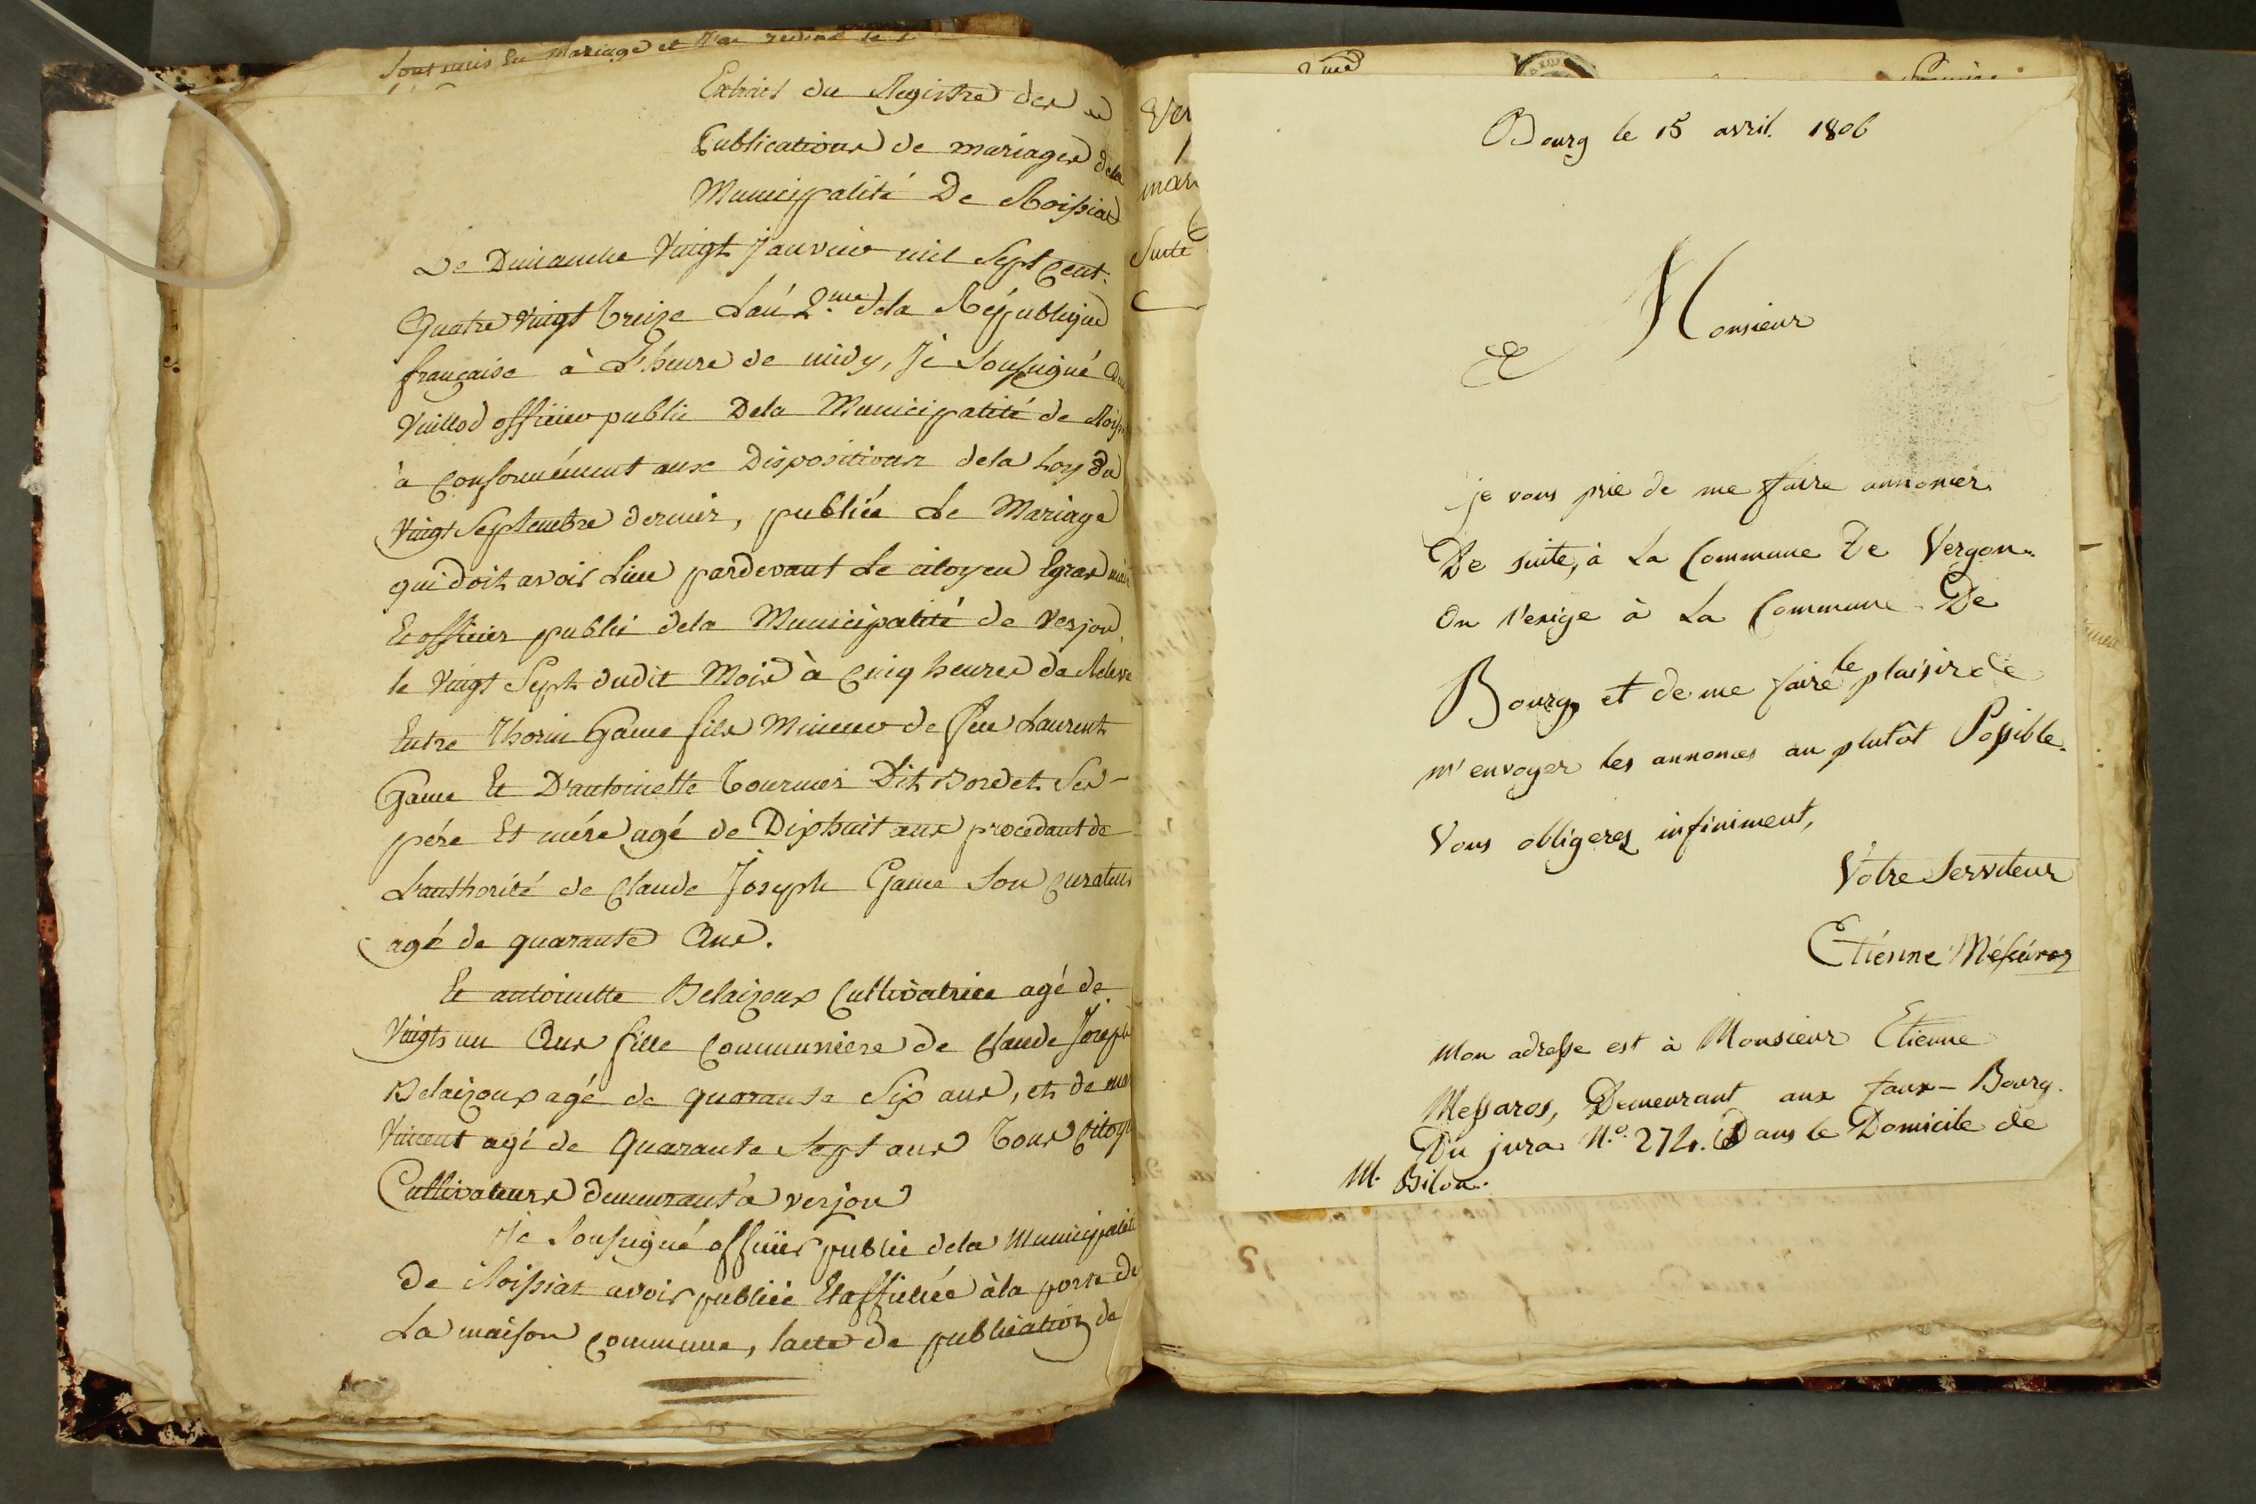 sont unis en Mariage et
Extrait du Registre des
Publications de mariages dela
Municipalité De Roissiat
Le Dimanche Vingt Janvier mil Sept Cent.
Quatre Vingt Treize L'an 2.me dela République
française à L'heure de midy, Je Soussigné
Vuillod officier public Dela Municipalité de Roiss
à Conformément aux Dispositions dela Loy du
Vingt Septembre dernier, publiée Le Mariage
qui doit avoir Lieu pardevant Le citoyen Egraz
Et officier public dela Municipalité de Verjon
le Vingt Sept dudit Mois à Cinq heures de Relevé
Entre Thorin Game fils Mineur de feu Laurent
Game Et D'antoinette Tournier Dit Bordet Ses
père Et mére agé de Dixhuit ans procedant de
L'authorité de Claude Joseph Game Son Curateur
agé de quarante Ans.
Et antoinette Belaizoux Cultivatrice agé de
Vingt un Ans fille Communiere de Claude Joseph
Belaizoux agé de quarante Six ans, et de
Vincent agé de Quarante Sept ans Tous Citoye
Cultivateurs demeurant à verjon
Je Soussigné officier public dela Municipalité
de Roissiat avoir publiée Et affichée à la porte de
La maison Commune, lacte de publication de
2me
Ver
mar
Suite
Bourg le 15 avril. 1806
Monsieur
je vous prie de me faire annoncer
De suite, à La Commune De Vergon.
On l'exige à La Commune De
Bourg, et de me faire le plaisir de
m'envoyer les annonces au plutôt Possible.
Vous obligerez infiniment,
Votre Serviteur
Etienne
Mon adresse est à Monsieur Etienne
Messaros, Demeurant aux faux-Bourg.
Du jura N.o 274. Dans le Domicile de
M. Bilon.